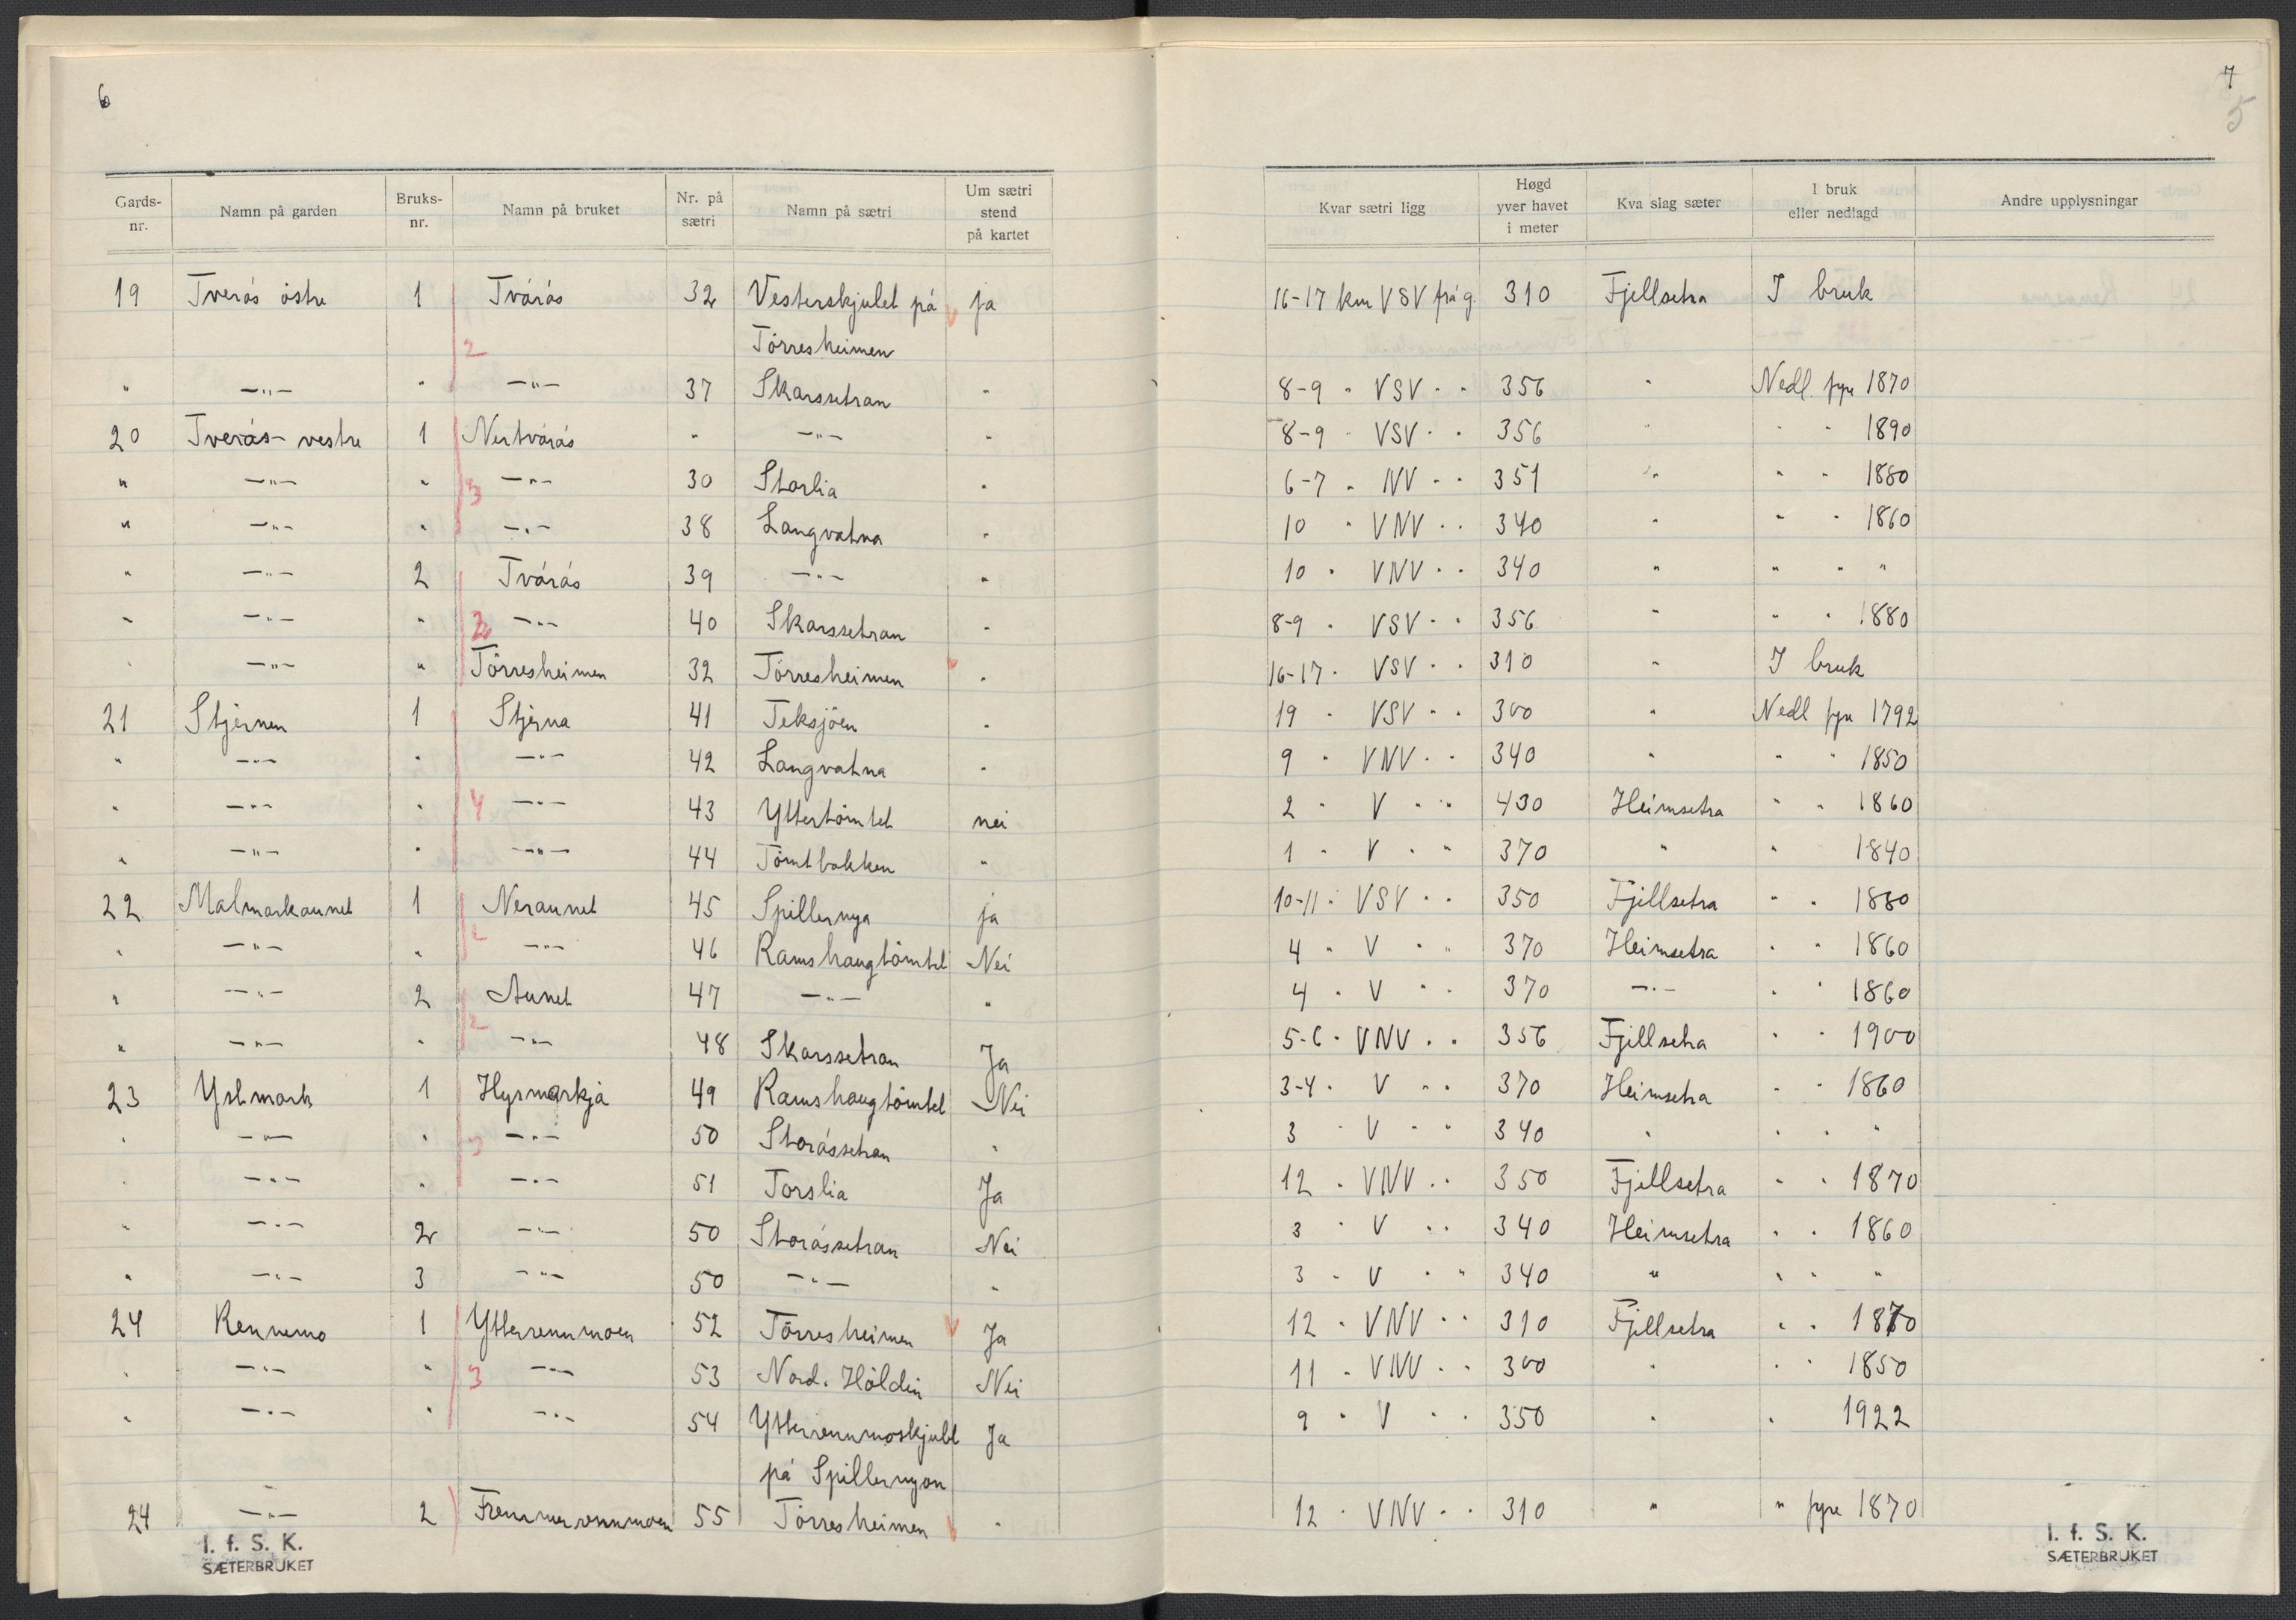 6
Gards-nr. Namn på garden Bruks-nr. Namn på bruket Nr. på sætri Namn på sætri Um sætri stend på kartet
19 Tverås östre 1 Tvårås 32 Vesterskjulet på ja
2 Törresheimen
" —"— " —"— 37 Skarssetran "
20 Tverås-vestre 1 Nertvårås " —"— "
" —"— " 3 —"— 30 Storlia "
" —"— " —"— 38 Langvatna "
" —"— 2 Tvårås 39 —"— "
" —"— " 3 —"— 40 Skarssetran "
" —"— " Törresheimen 32 Törresheimen "
21 Stjernen 1 Stjerna 41 Teksjöen "
" —"— " —"— 42 Langvatna "
" —"— " 4 —"— 43 Yttertömtet nei
" —"— " —"— 44 Tömtbakken "
22 Malmarkaunet 1 Neraunet 45 Spillernya ja
" —"— " 2 —"— 46 Ramshaugtömtet Nei
" —"— 2 Aunet 47 —"— "
" —"— " 2 —"— 48 Skarssetran Ja
23 Ystmark 1 Hysmarkja 49 Ramshaugtömtet Nei
" —"— " 3 —"— 50 Storåssetran "
" —"— " —"— 51 Torslia Ja
" —"— 2 —"— 50 Storåssetran Nei
" —"— 3 —"— 50 —"— "
24 Rennemo 1 Ytterrennmoen 52 Törresheimen Ja
" —"— " 3 —"— 53 Nord. Höldin Nei
" —"— " —"— 54 Ytterrennmoskjulet Ja
på Spillernyan
24 —"— 2 Fremmerrennmoen 55 Törresheimen "
I. f. S. K.
SÆTERBRUKET
7
5
Kvar sætri ligg Høgd yver havet i meter Kva slag sæter I bruk eller nedlagd Andre upplysningar
16-17 km VSV frå g. 310 Fjellsetra I bruk
8-9 " VSV " " 356 " Nedl. fyre 1870
8-9 " VSV " " 356 " " " 1890
6-7 " NV " " 351 " " " 1880
10 " VNV " " 340 " " " 1860
10 " VNV " " 340 " " " "
8-9 " VSV " " 356 " " " 1880
16-17 " VSV " " 310 " I bruk
19 " VSV " " 300 " Nedl fyre 1792
9 " VNV " " 340 " " " 1850
2 " V " " 430 Heimsetra " " 1860
1 " V " " 370 " " 1840
10-11 " VSV " " 350 Fjellsetra " " 1880
4 " V " " 370 Heimsetra " " 1860
4 " V " " 370 —"— " " 1860
5-6 " VNV " " 356 Fjellsetra " " 1900
3-4 " V " " 370 Heimsetra " " 1860
3 " V " " 340 " " " "
12 " VNV " " 350 Fjellsetra " " 1870
3 " V " " 340 Heimsetra " " 1860
3 " V " " 340 " " " "
12 " VNV " " 310 Fjellsetra " " 1870
11 " VNV " " 300 " " " 1850
9 " V " " 350 " " 1922
12 " VNV " " 310 " " fyre 1870
I. f. S. K.
SÆTERBRUKET